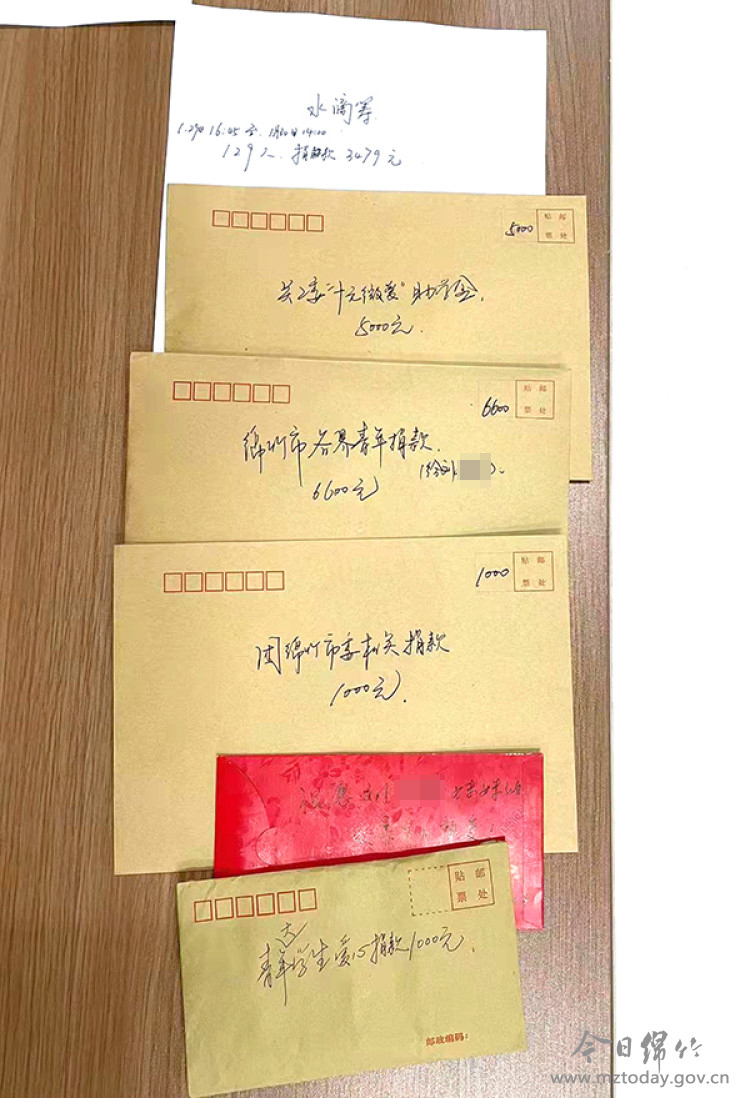 水滴筹
1.29日 16:45至 1月30日 14:00
129人 捐赠款 3479元
5000
贴 邮
票 处
关工委“十元微爱”助学金
5000元
6600
贴 邮
票 处
绵竹市各界青年捐款
6600元
(给刘 )
1000
贴 邮
票 处
团绵竹市委机关捐款
1000元
祝愿
贴 邮
票 处
大
青年学生爱心捐款1000元
邮政编码:
今日绵竹
www.mztoday.gov.cn